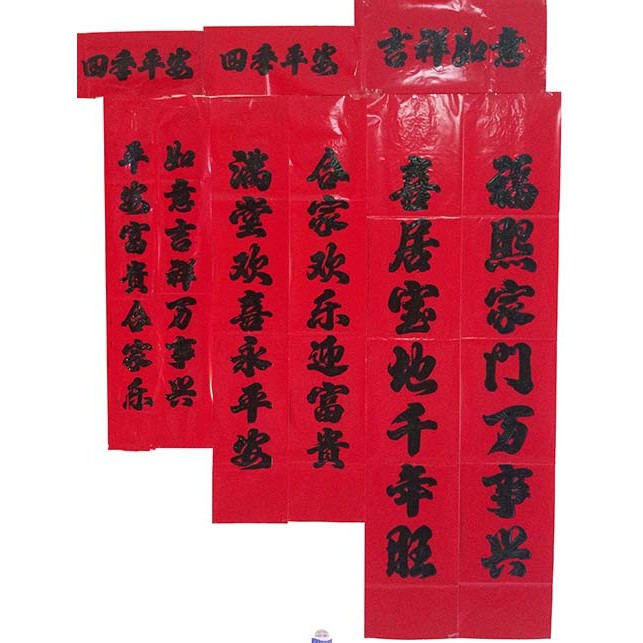 四季平安
如意吉祥万事兴
平安富貴合家乐
四季平安
合家欢乐迎富貴
满堂欢喜永平安
吉祥如意
福照家门万事兴
喜居宝地千年旺